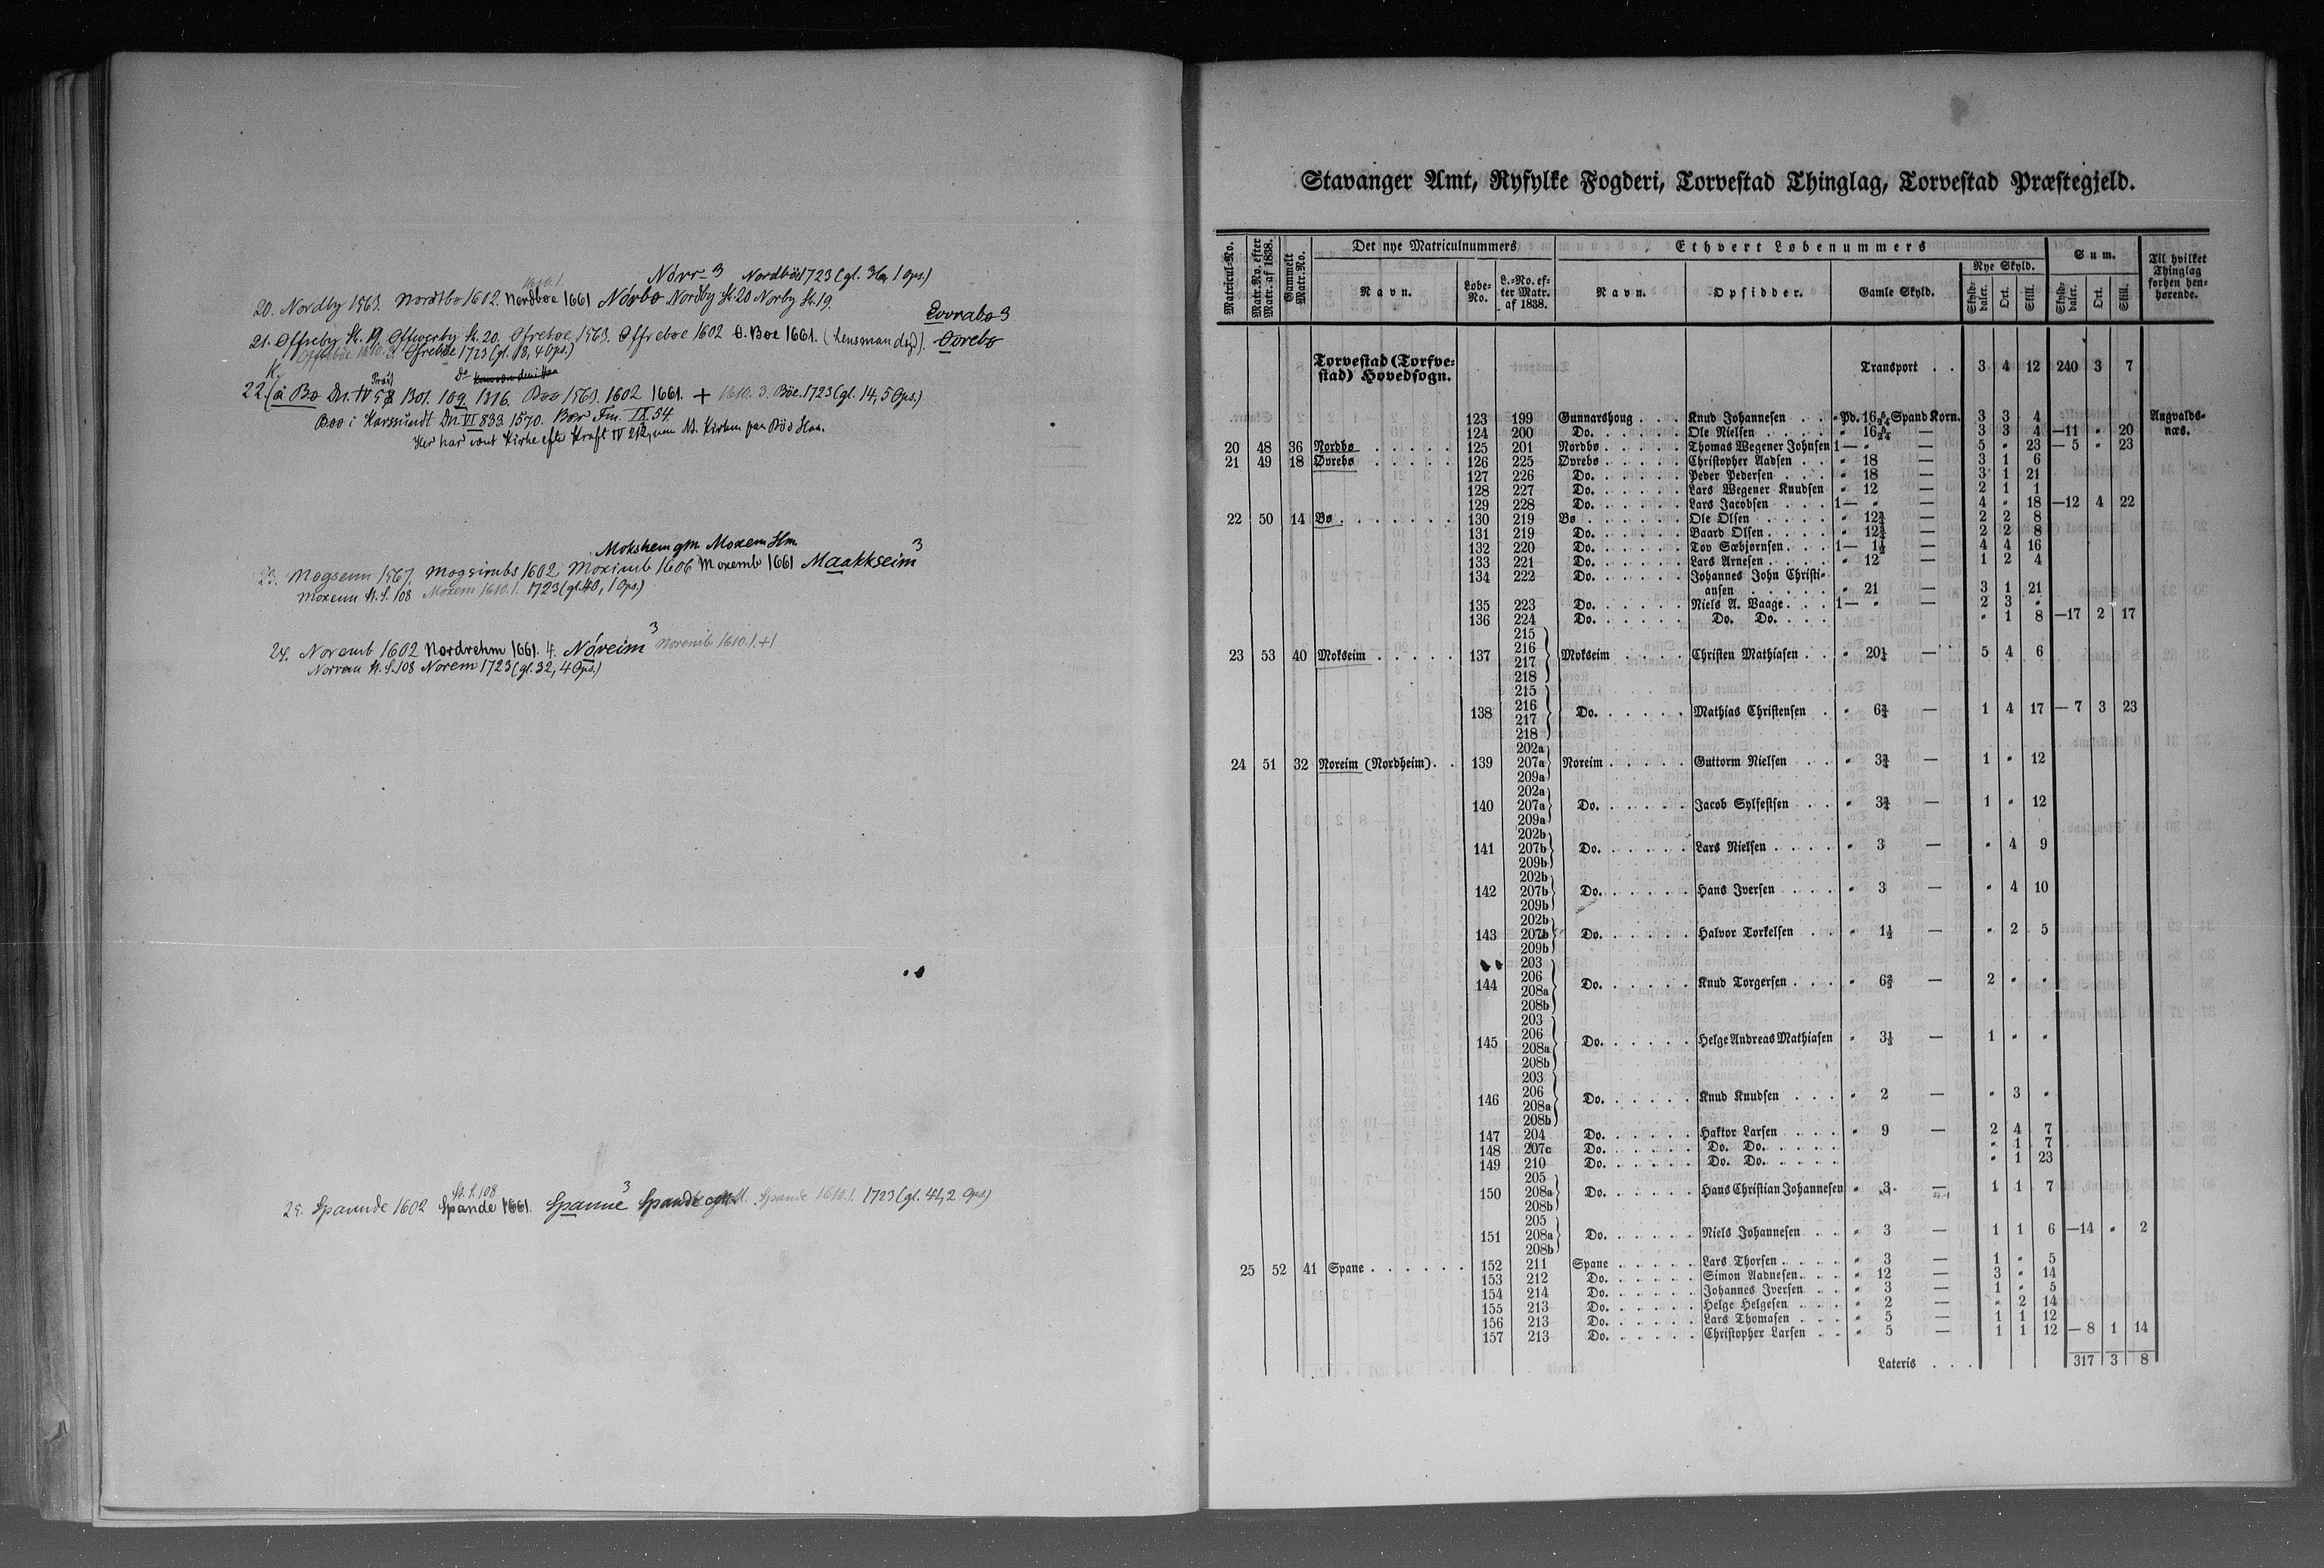 1610.1. Nórr- 3 Nordböe 1723 (gl. 36, 1 Ops.)
20. Nordby 1563. Nordtbo 1602. Nordboe 1661 Nórbø Nordby St. 20 Norby St. 19.
Evvrabø 3
21. Offreby St. 19 Offwerby St. 20. Ofreboe 1563. Offreboe 1602 O. Boe 1661. (Lensmandsg). Øvrebø
Offreböe 1610.3 Öfreböe 1723 (gl. 18, 4 Ops.)
K.
22. (a Bø Dn. IV 58 Bol. 109. 1316. Boo 1563. 1602 1661. + 1610. 3. Böe. 1723 (gl. 14, 5 Ops.)
Boo i Karmsundt Dn. VI 833. 1570. Bøer Fm. IX 54.
Her har været Kirke efter Kraft IV 212, nem. St. Kirken paa Böe
Moksheim gm. Moxem Hm.
23. Mogsenn 1567. Mogsimbs 1602 Moximb 1606 Moxemb 1661 Maakkseim 3
Moxenn St. S. 108 Moxem 1610.1. 1723 (gl. 40, 1 Ops.)
24. Noremb 1602 Nordrehm 1661. 4. Nóreim 3 Noremb 1610.1. + 1
Norem St. S. 108 Norem 1723 (gl. 32, 4 Ops.)
St. S. 108
25. Spannde 1602 Spande 1661. Spanne 3 Spande Spande 1610.1. 1723 (gl. 41, 2 Ops)
Stavanger Amt, Ryfylke Fogderi, Torvestad Thinglag, Torvestad Præstegjeld.
Matricul-No. Matr.-No. efter Matr. af 1838. Gammelt Matr.-No. Det nye Matriculnummers Ethvert Løbenummers Sum. Til hvilket Thinglag forhen henhørende.
Navn. Løbe-No. L.-No. efter Matr. af 1838. Navn. Opsidder. Gamle Skyld. Nye Skyld. Skylddaler. Ort. Skill. Skylddaler. Ort. Skill.
Torvestad (Torfvestad) Hovedsogn. Transport . . 3 4 12 240 3 7
123 199 Gunnarshoug . . . Knud Johannesen . . „ Pd. 16 5/24 Spand Korn. 3 3 4 Augvalds-
124 200 Do. . . . . . Ole Nielsen . . . . „ 16 5/24 — 3 3 4 —11 „ 20 næs.
20 48 36 Nordbø . . . . . 125 201 Nordbø . . . . . Thomas Wegener Johnsen 1— „ — 5 „ 23 — 5 „ 23
21 49 18 Øvrebø . . . . . 126 225 Øvrebø . . . . . Christopher Aadsen . . „ 18 — 3 1 6
127 226 Do. . . . . . Peder Pedersen . . . „ 18 — 3 1 21
128 227 Do. . . . . . Lars Wegener Knudsen „ 12 — 2 1 1
129 228 Do. . . . . . Lars Jacobsen . . . 1— „ — 4 „ 18 —12 4 22
22 50 14 Bø . . . . . . . 130 219 Bø . . . . . . . Ole Olsen . . . . . „ 12¾ — 2 2 8
131 219 Do. . . . . . Baard Olsen . . . . „ 12¾ — 2 2 8
132 220 Do. . . . . . Tov Sæbjørnsen . . . 1— 1½ — 4 4 16
133 221 Do. . . . . . Lars Arnesen . . . . „ 12 — 1 2 4
134 222 Do. . . . . . Johannes John Christi-
ansen . . . . . „ 21 — 3 1 21
135 223 Do. . . . . . Niels A. Vaage . . . 1— „ — 2 3 „
136 224 Do. . . . . . Do. Do. . . . „ 1 8 —17 2 17
215
216
23 53 40 Mokseim . . . . . 137 217 Mokseim . . . . . Christen Mathiasen . . „ 20¼ — 5 4 6
218
215
216
138 217 Do. . . . . . Mathias Christensen . „ 6¾ — 1 4 17 — 7 3 23
218
202a
24 51 32 Noreim (Nordheim) . . 139 207a Noreim . . . . . Guttorm Nielsen . . . „ 3¾ — 1 „ 12
209a
202a
140 207a Do. . . . . . Jacob Sylfestsen . . . „ 3¾ — 1 „ 12
209a
202b
141 207b Do. . . . . . Lars Nielsen . . . . „ 3 — „ 4 9
209b
202b
142 207b Do. . . . . . Hans Iversen . . . . „ 3 — „ 4 10
209b
202b
143 207b Do. . . . . . Halvor Torkelsen . . „ 1½ — „ 2 5
209b
203
206
144 208a Do. . . . . . Knud Torgersen . . . „ 6⅔ — 2 „ „
208b
203
206
145 208a Do. . . . . . Helge Andreas Mathiasen „ 3⅓ — 1 „ „
208b
203
206
146 208a Do. . . . . . Knud Knudsen . . . „ 2 — „ 3 „
208b
147 204 Do. . . . . . Haktor Larsen . . . . „ 9 — 2 4 7
148 207c Do. . . . . . Do. Do. . . . . . „ 1 7
149 210 Do. . . . . . Do. Do. . . . . . „ 1 23
205
150 208a Do. . . . . . Hans Christian Johannesen „ 3 — 1 1 7
208b
205
151 208a Do. . . . . . Niels Johannesen . . „ 3 — 1 1 6 —14 „ 2
208b
25 52 41 Spane . . . . . . 152 211 Spane . . . . . Lars Thorsen . . . . „ 3 — 1 „ 5
153 212 Do. . . . . . Simon Aadnesen . . . „ 12 — 3 „ 14
154 214 Do. . . . . . Johannes Iversen . . „ 3 — 1 „ 5
155 213 Do. . . . . . Helge Helgesen . . . „ 2 — „ 2 14
156 213 Do. . . . . . Lars Thomasen . . . „ 5 — 1 1 12
157 213 Do. . . . . . Christopher Larsen . . „ 5 — 1 1 12 — 8 1 14
Lateris . . . 317 3 8